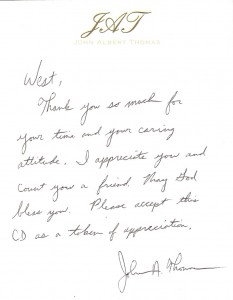 JAT
JOHN ALBERT THOMAS
West,
Thank you so much for
your time and your caring
attitude. I appreciate you and
count you a friend. May God
bless you. Please accept this
CD as a token of appreciation.
John A. Thomas